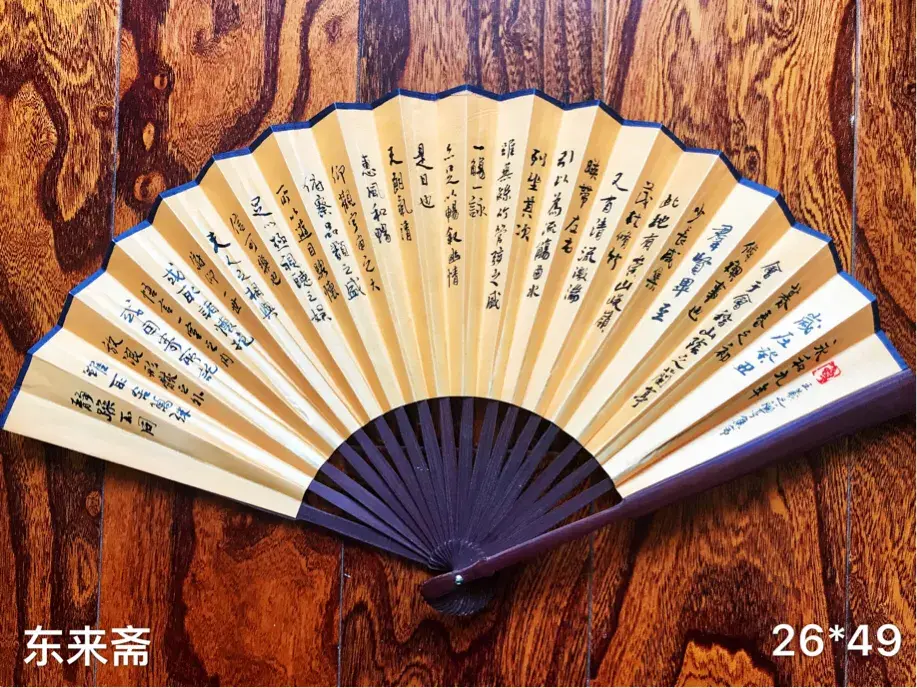 王羲之蘭亭集序
永和九年
歲在癸丑
暮春之初
會于會稽山陰之蘭亭
脩禊事也
羣賢畢至
少長咸集
此地有崇山峻領
茂林脩竹
又有清流激湍
暎帶左右
引以為流觴曲水
列坐其次
雖無絲竹管弦之盛
一觴一詠
亦足以暢叙幽情
是日也
天朗氣清
惠風和暢
仰觀宇宙之大
俯察品類之盛
所以遊目騁懷
足以極視聽之娛
信可樂也
夫人之相與
俯仰一世
或取諸懷抱
悟言一室之內
或因寄所託
放浪形骸之外
雖趣舍萬殊
静躁不同
东来斋
26*49